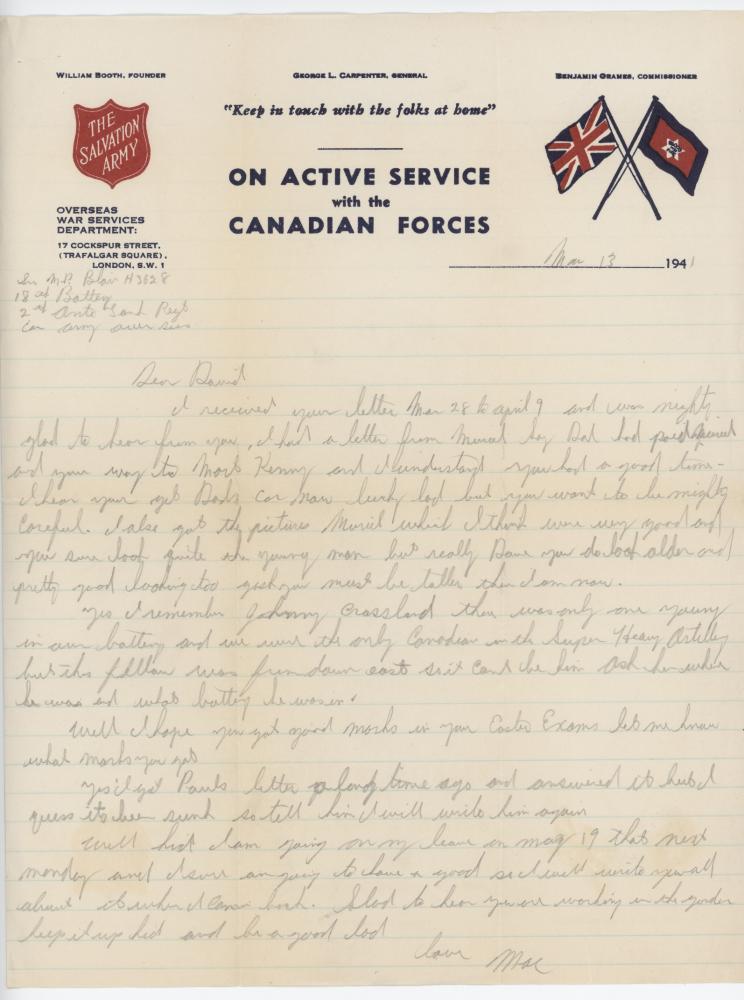 WILLIAM BOOTH, FOUNDER
GEORGE L. CARPENTER, GENERAL
BENJAMIN ORAMES, COMMISSIONER
THE
SALVATION
ARMY
"Keep in touch with the folks at home"
ON ACTIVE SERVICE
with the
CANADIAN FORCES
OVERSEAS
WAR SERVICES
DEPARTMENT:
17 COCKSPUR STREET,
(TRAFALGAR SQUARE),
LONDON, S.W. 1
Mar 13 1941
Gnr M.R. Blair H3628
18th Battery
2nd Anti Tank Regt
Can army over seas
Dear David
I received your letter Mar 28 to april 9 and was mighty
glad to hear from you, I had a letter from Muriel say Dad had paid
and your way to Kenny and I understand you had a good time
I hear your get Dads car now lucky lad but you want to be mighty
careful. I also got the pictures Muriel which I think were very good and
you sure look quite the young man but really Dave you do look older and
pretty good looking too gosh you must be taller then I am now.
Yes I remember Johnny Crossland there was only one young
in our battery and we were the only Canadian in the Super Heavy Artillery
but this fellow was from down east so it cant be him ask her where
he was and what battery he was in.
Well I hope you got good marks in your Easter Exams let me know
what marks you got
Yes I got Pauls letter a long time ago and answered it but I
guess its been sunk so tell him I will write him again
Well kid I am going on my leave on may 19 that next
monday and I sure am going to have a good so I will write you all
about it when I come back. Glad to hear you are working in the garden
keep it up kid and be a good lad
love Mac